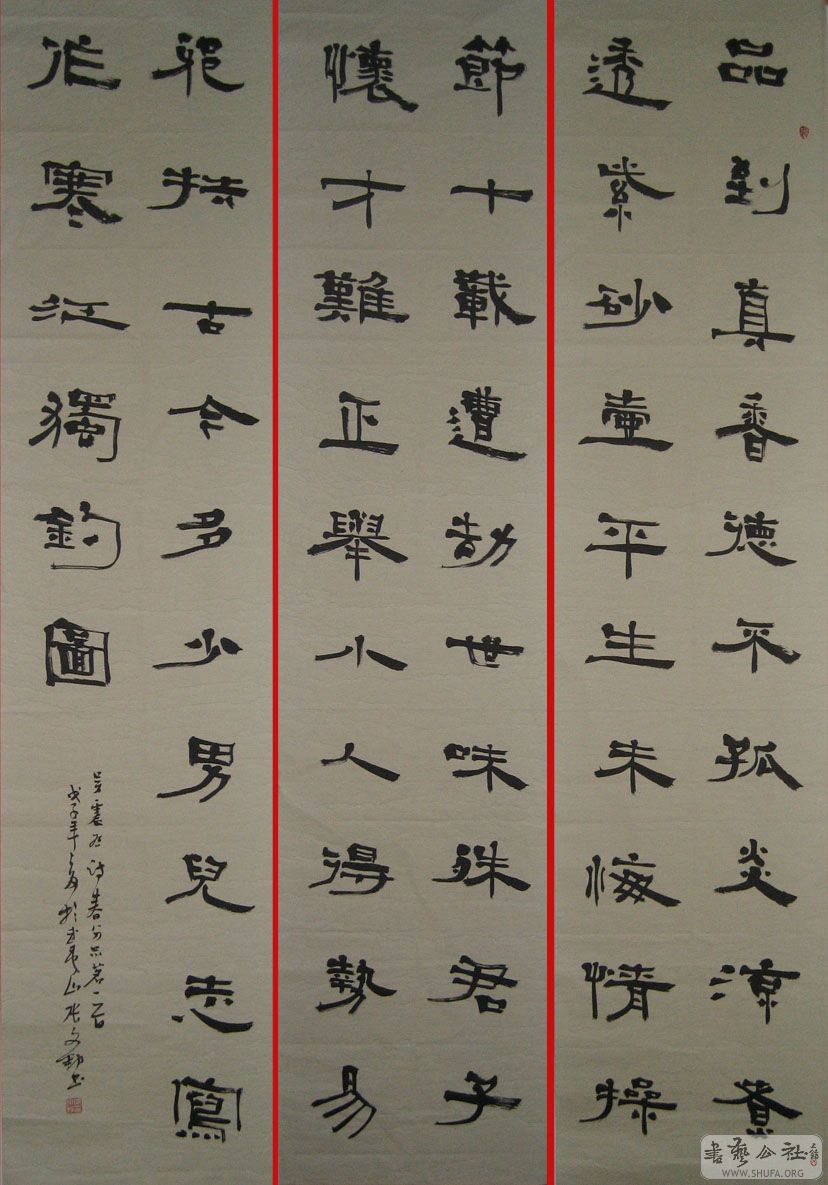 品到真香德不孤炎涼煮
透紫砂壺平生未悔情操
節十載遭劫世味殊君子
懷才難正舉小人得勢易
邪扶古今多少男兒志寫
作寒江獨釣圖
诗春分品茗一首
戊子年之夏於武夷山張文
書藝公社
WWW.SHUFA.ORG